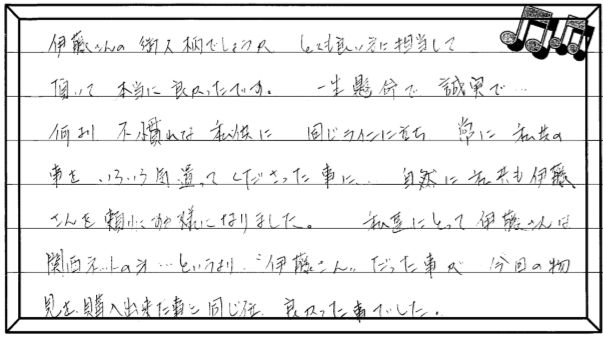 伊藤さんの御人柄でしょうか とても良い方に担当して
頂いて 本当に良かったです。 一生懸命で 誠実で…
何より 不慣れな私供に 同じラインに立ち 常に私共の
事を いろいろ気遣ってくださった事に… 自然に私共も伊藤
さんを頼りにする様になりました。 私達にとって伊藤さんは
関西ネットの方…というより〝伊藤さん〟だった事が 今回の物
見を購入出来た事と同じ位 良かった事でした。